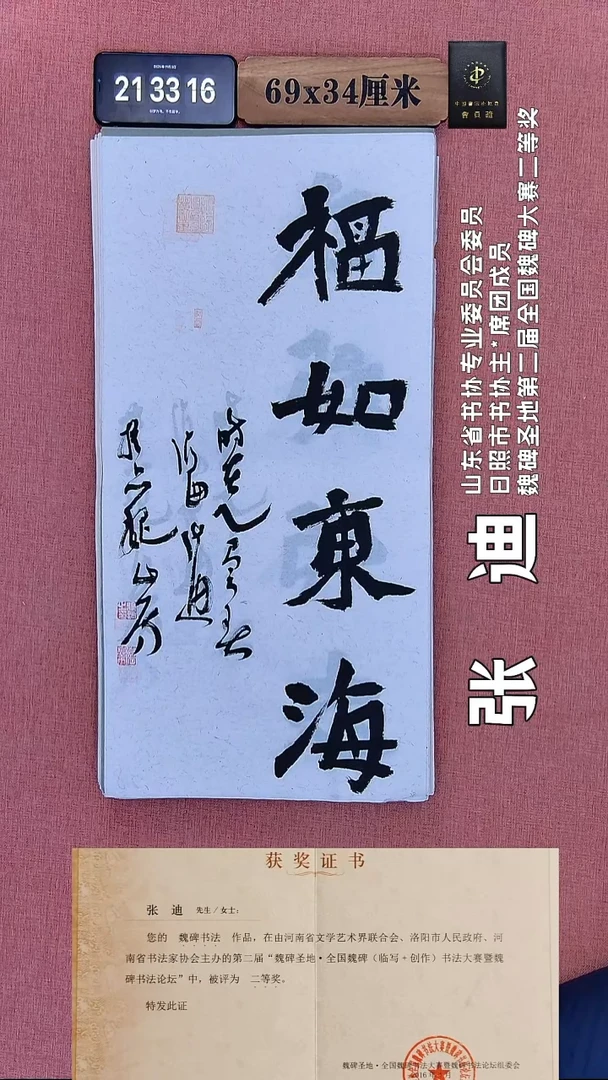 21 33 16
69x34厘米
福如東海
山东省书协专业委员会委员
日照市书协主*席团成员
魏碑圣地第二届全国魏碑大赛二等奖
张 迪
获奖证书
张 迪 先生/女士:
您的 魏碑书法 作品,在由河南省文学艺术界联合会、洛阳市人民政府、河
南省书法家协会主办的第二届“魏碑圣地·全国魏碑(临写+创作)书法大赛暨魏
碑书法论坛”中,被评为 二等奖。
特发此证
魏碑圣地·全国魏碑书法大赛暨魏碑书法论坛组委会